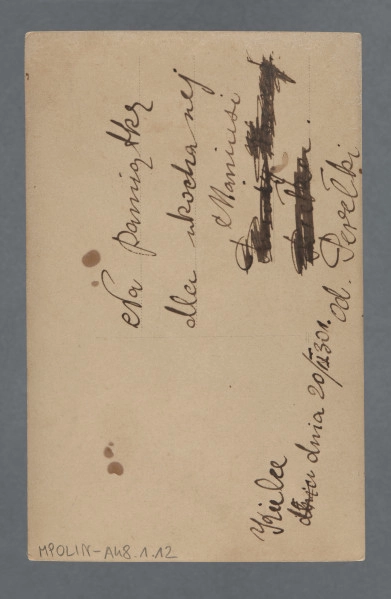 Na pamiątkę
dla ukochanej
Maniusi
od. Perełki
Kielce
dnia 20/II 30 r.
MPOLIN-A48.1.12